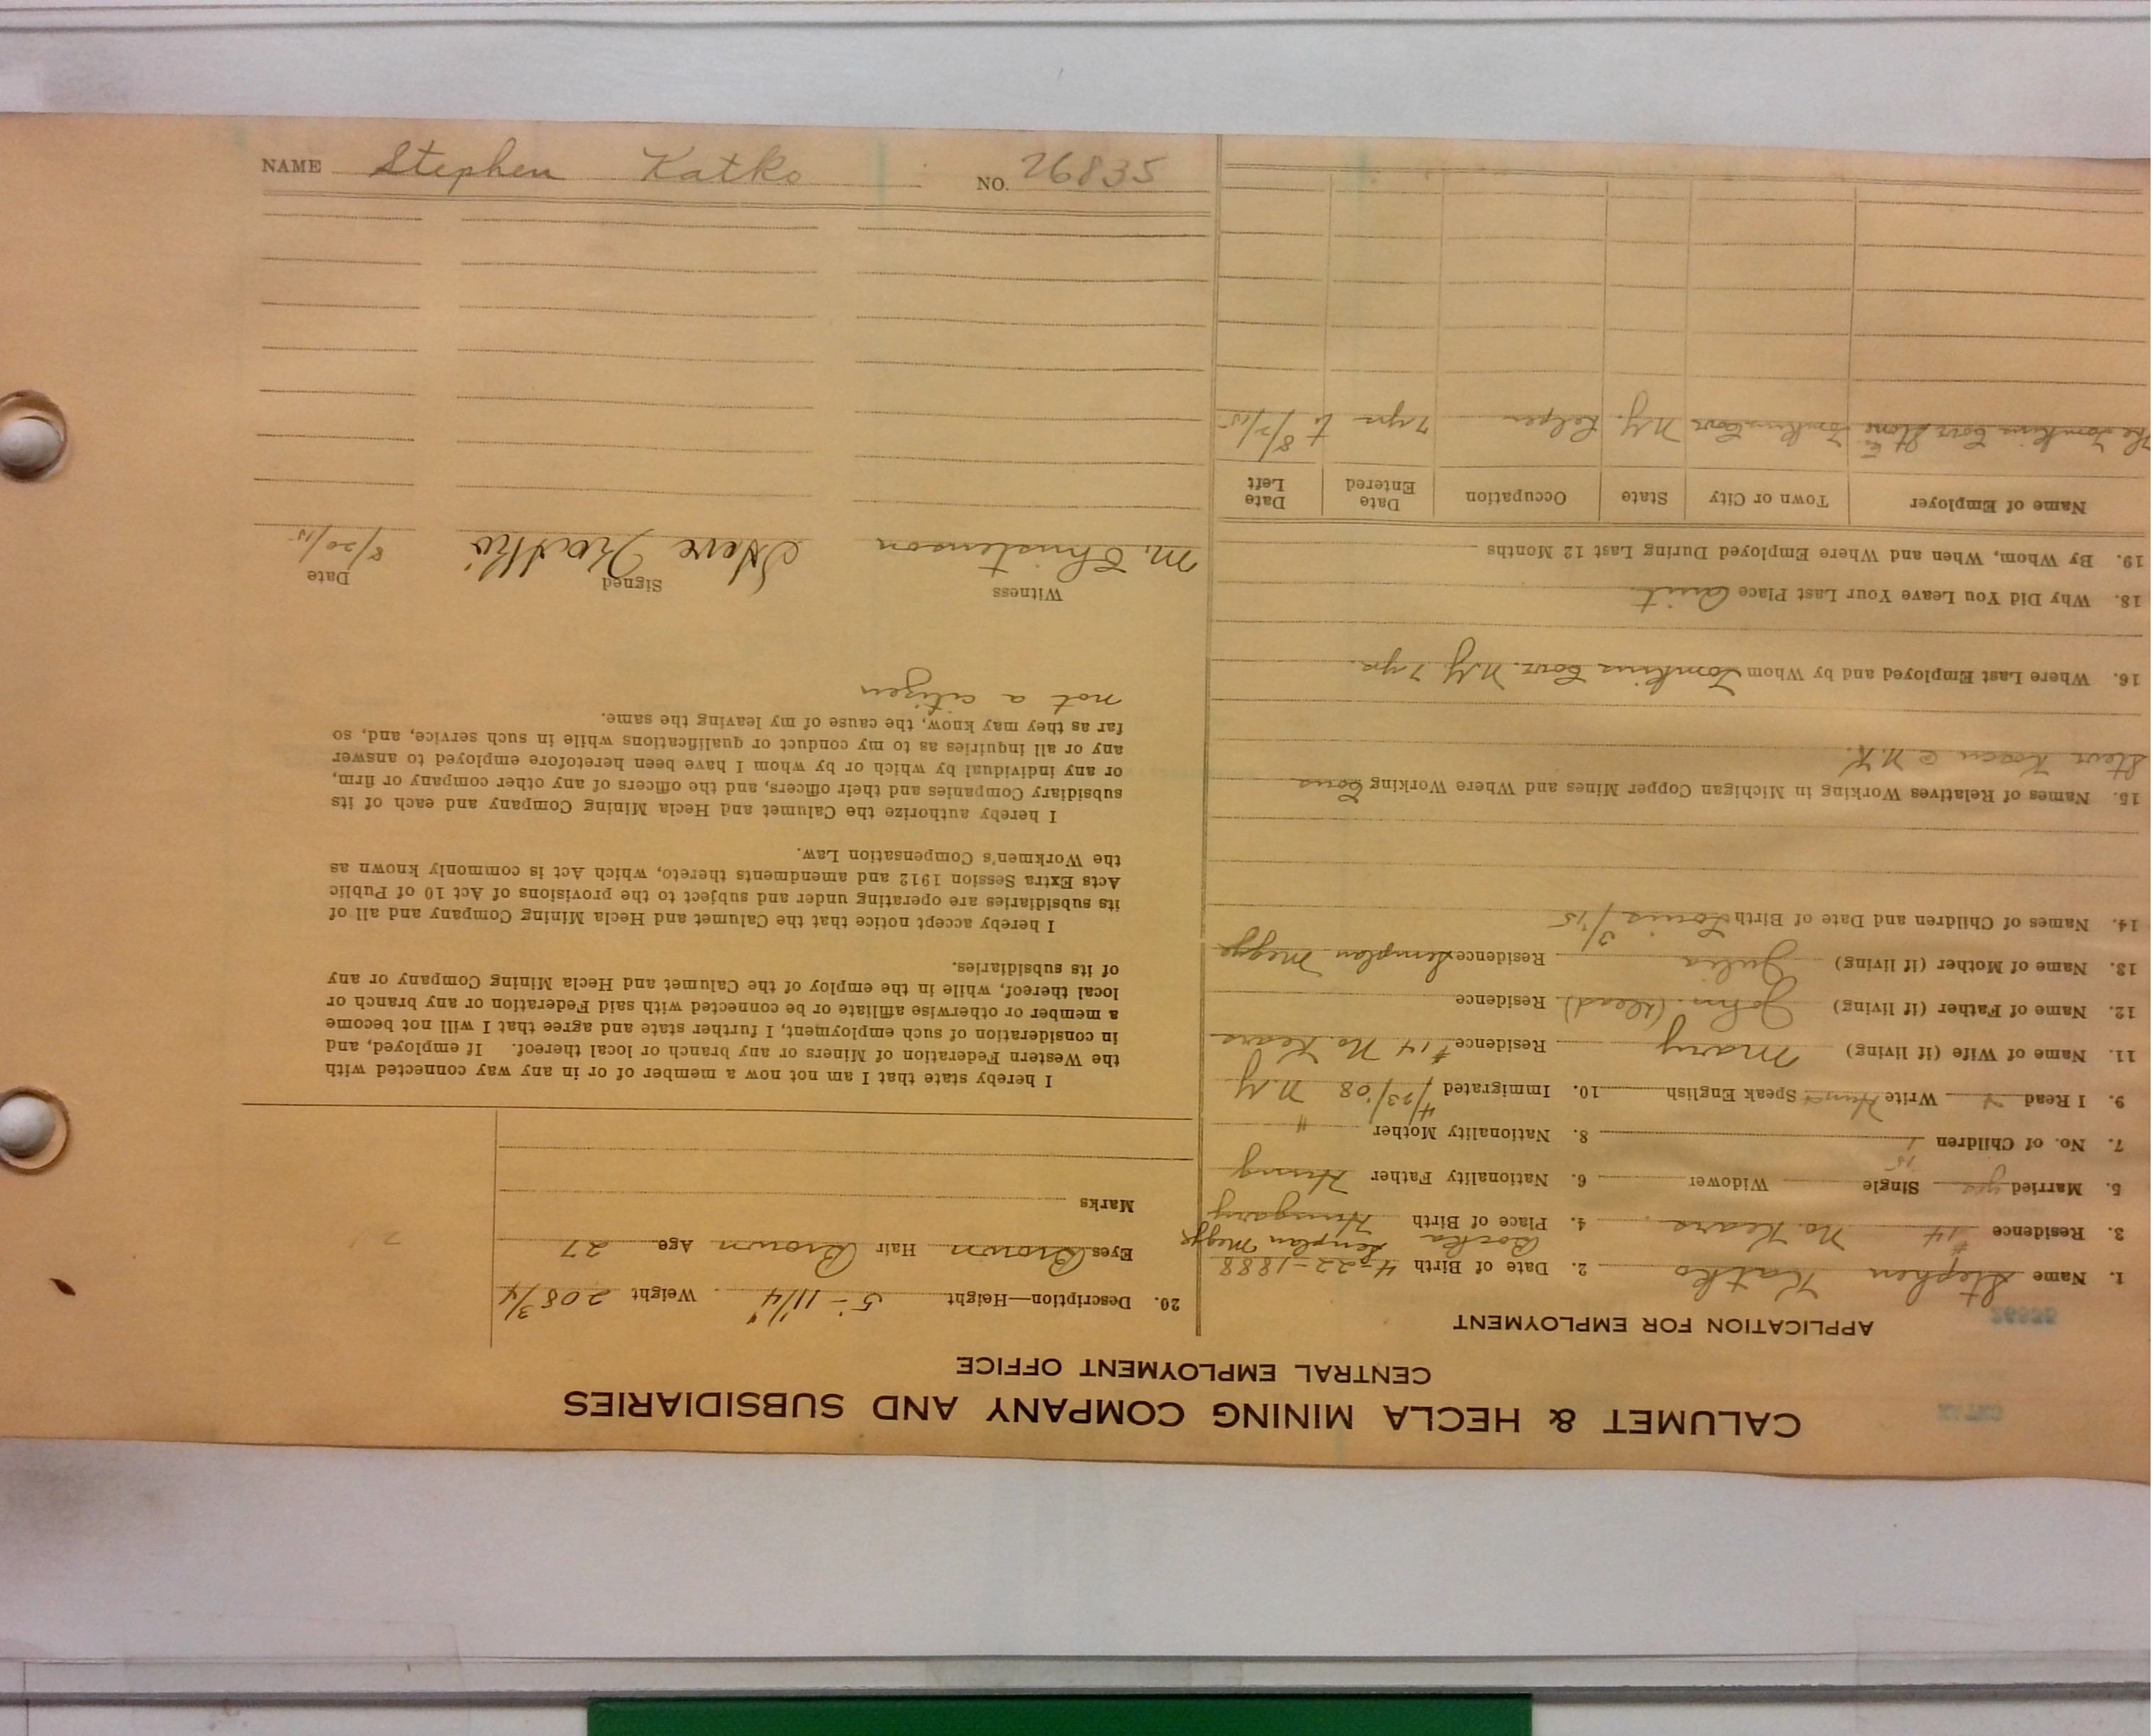 CALUMET & HECLA MINING COMPANY AND SUBSIDIARIES
CENTRAL EMPLOYMENT OFFICE
26835
APPLICATION FOR EMPLOYMENT
1. Name Stephen Katko 2. Date of Birth 4-22-1888
3. Residence #14 No. Kears. 4. Place of Birth Hungary
5. Married yes Single Widower 6. Nationality Father Hung
7. No. of Children 1 8. Nationality Mother "
9. I Read Write Hung Speak English 10. Immigrated 4/23/08 N.Y
11. Name of Wife (if living) Mary Residence #14 No Kears
12. Name of Father (if living) John (dead) Residence
13. Name of Mother (if living) Julia Residence Megye
14. Names of Children and Date of Birth Louis 3/15
15. Names of Relatives Working in Michigan Copper Mines and Where Working
@ N.K.
16. Where Last Employed and by Whom Tomkins Cove N.Y 7 yrs.
18. Why Did You Leave Your Last Place Quit.
19. By Whom, When and Where Employed During Last 12 Months
Name of Employer Town or City State Occupation Date Entered Date Left
The Tomkins Cove Stone Co Tomkins Cove N.Y. Helper 7 yrs to 8/2/15
20. Description—Height 5-11 1/4 Weight 208 3/4
Eyes Brown Hair Brown Age 27
Marks
I hereby state that I am not now a member of or in any way connected with
the Western Federation of Miners or any branch or local thereof. If employed, and
in consideration of such employment, I further state and agree that I will not become
a member or otherwise affiliate or be connected with said Federation or any branch or
local thereof, while in the employ of the Calumet and Hecla Mining Company or any
of its subsidiaries.
I hereby accept notice that the Calumet and Hecla Mining Company and all of
its subsidiaries are operating under and subject to the provisions of Act 10 of Public
Acts Extra Session 1912 and amendments thereto, which Act is commonly known as
the Workmen's Compensation Law.
I hereby authorize the Calumet and Hecla Mining Company and each of its
subsidiary Companies and their officers, and the officers of any other company or firm,
or any individual by which or by whom I have been heretofore employed to answer
any or all inquiries as to my conduct or qualifications while in such service, and, so
far as they may know, the cause of my leaving the same.
not a citizen
Witness Signed Date
M. Christenson Steve Katko 8/20/15
NAME Stephen Katko NO. 26835